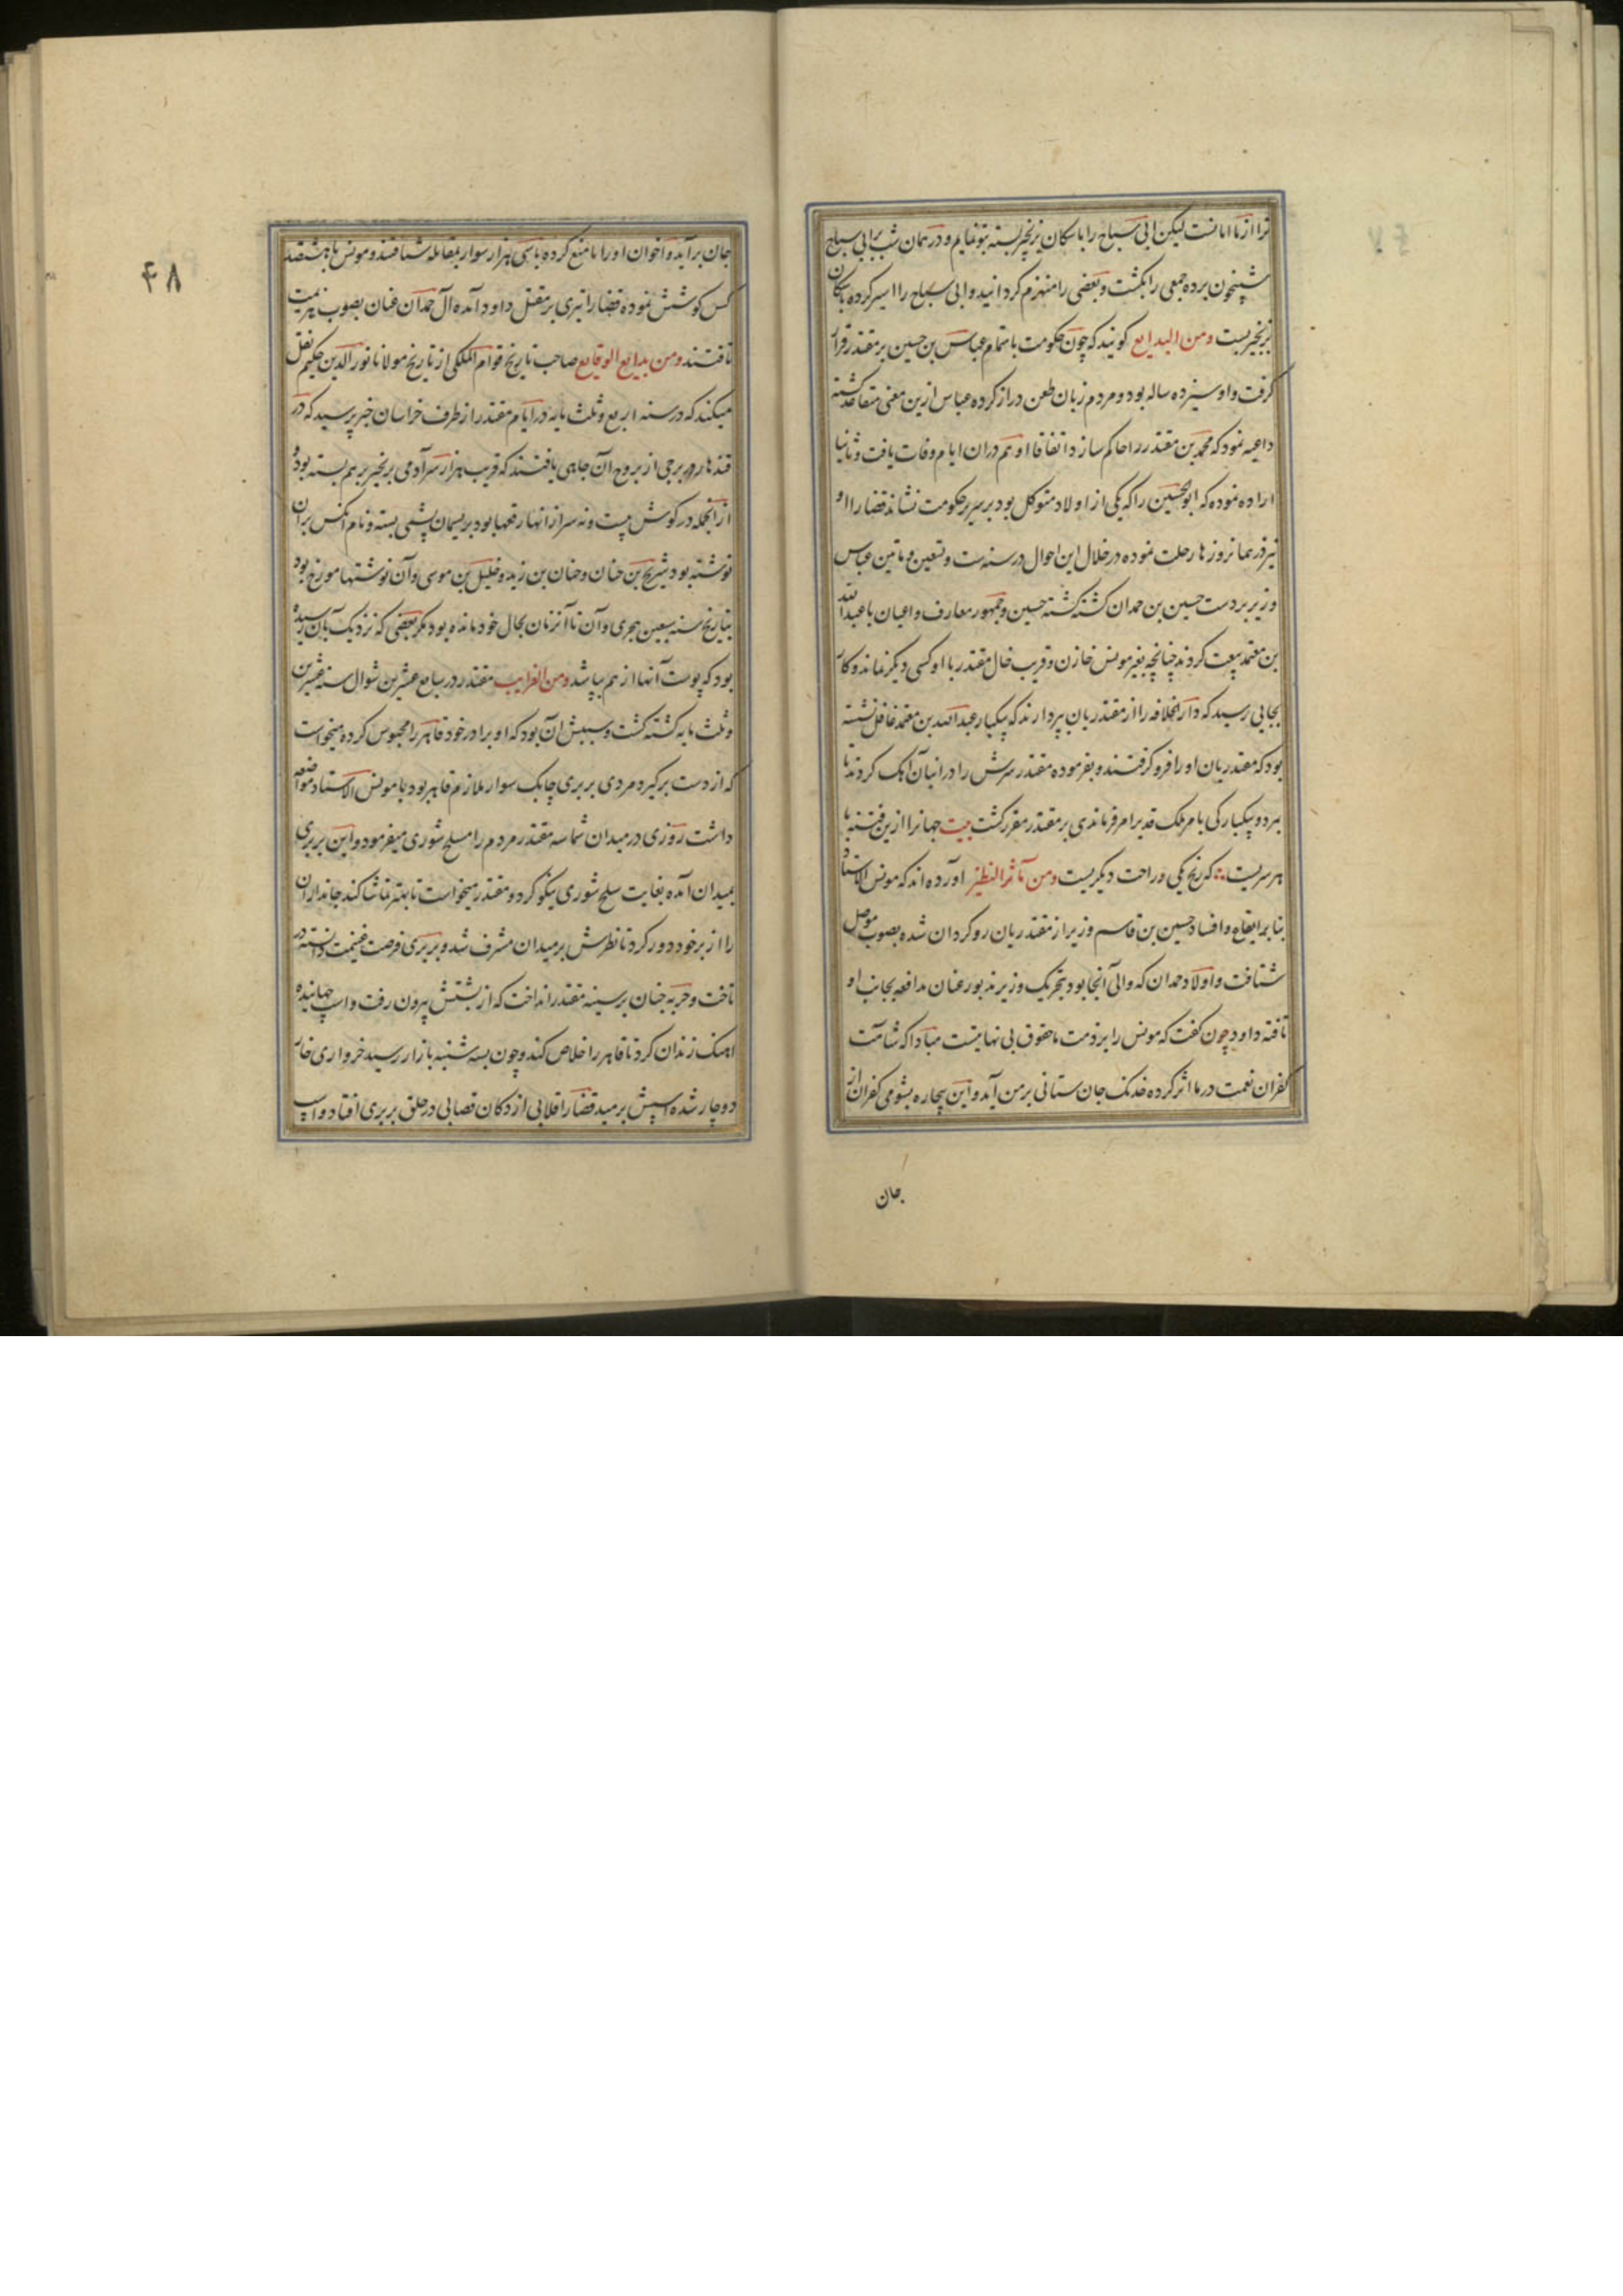 ترا از ما امانست لیکن ابی سیاح را با سکان بزنجیر بسته بتو نمایم و در همان شب برابی سیاح
شبیخون برده جمعی را بکشت و بعضی را منهزم کردانید و ابی سیاح را اسیر کرده با سکان
بزنجیر بست ومن البدایع کویند که چون حکومت باتمام عباس بن حسین بر مقتدر قرار
کرفت و او سیزده ساله بود و مردم زبان طعن دراز کرده عباس ازین معنی متقاعد کشته
داعیه نمود که محمد بن مقتدر را حاکم سازد اتفاقا او هم دران ایام وفات یافت و ثانیا
اراده نموده که ابوالحسین را که یکی از اولاد متوکل بود بر سریر حکومت نشاند قضا را او
نیز در همان روزها رحلت نموده در خلال این احوال در سنه ست و تسعین و ماتین عباس
وزیر بر دست حسین بن حمدان کشته کشته حسین و جمهور معارف و اعیان با عبدالله
بن معتمد بیعت کردند چنانچه بغیر مونس خازن و قریب خال مقتدر با او کسی دیکر نماند و کار
بجایی رسید که دار الخلافه را از مقتدریان بپردازند که بیکبار عبدالله بن معتمد غافل نشسته
بود که مقتدریان او را فرو کرفتند و بفرموده مقتدر سرش را در انبان آهک کردند تا
بمرد و بیکبارکی بامر ملک قدیر امر فرماندهی بر مقتدر مقرر کشت بیت جهانرا ازین فتنه با
هر سریست که رنج یکی و راحت دیکریست ومن مآثر النظیر آورده اند که مونس الاستاد
بنا بر ایقاع و افساد حسین بن قاسم وزیر از مقتدریان رو کردان شده بصوب موصل
شتافت و اولاد حمدان که والی آنجا بود بتحریک وزیر مذبور عنان مدافعه بجانب او
تافته داود چون کفت که مونس را بر ذمت ما حقوق بی نهایتست مبادا که شآمت
کفران نعمت در ما اثر کرده خدنک جان ستانی بر من آید و این بیچاره بشومی کفران از
جان
۴۸
جان برآید و اخوان او را مانع کرده باسی هزار سوار بمقابله شتافتند و مونس با هشتصد
کس کوشش نموده قضا را تیری بر مقتل داود آمده آل حمدان عنان بصوب هزیمت
تافتند ومن بدایع الوقایع صاحب تاریخ قوام الملکی از تاریخ مولانا نور الدین حکیم نقل
میکند که در سنه اربع و ثلث مایه در ایام مقتدر از طرف خراسان خبر رسید که در
قندهار در برجی از بروج آن جاهی یافتند که قریب هزار سر آدمی بزنجیر بر هم بسته بود و
از آنجمله در کوش بیست و نه سر از انها رقعها بود بریسمان پشمی بسته و نام آنکس بران
نوشته بود شریح بن حنان و حنان بن زید و خلیل بن موسی و آن نوشتها مورخ بود
بتاریخ سنه سبعین هجری و آن تا آنزمان بحال خود مانده بود مکر بعضی که نزدیک بآن رسیده
بود که پوست آنها از هم بپاشد ومن الغرایب مقتدر در سابع عشرین شوال سنه عشرین
و ثلث مایه کشته کشت و سببش آن بود که او برادر خود قاهر را محبوس کرده میخواست
که از دست برکیرد مردی بربری چابک سوار ملازم قاهر بود با مونس الاستاد مواضعه
داشت روزی در میدان شماسه مقتدر مردم را سلح شوری میفرمود و این بربری
بمیدان آمده بغایت سلح شوری نیکو کرد و مقتدر میخواست تا بهتر تماشا کند جانداران
را از بر خود دور کرد تا نظرش بر میدان مشرف شد و بربری فرصت غنیمت دانسته در
تاخت و حربه چنان بر سینه مقتدر انداخت که از پشتش بیرون رفت و اسب جهانیده
آهنک زندان کرد تا قاهر را خلاص کند و چون بسه شنبه بازار رسید خرواری خار
دوچار شده اسپش برمید قضا را قلابی از دکان قصابی در حلق بربری افتاد و اسب